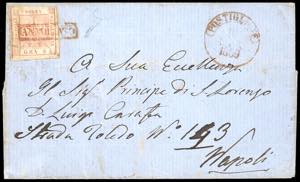 ANNULLATO
POSTIGLIONE
A Sua Eccellenza
Il Sig. Principe di S. Lorenzo
D. Luigi Carafa
Strada Toledo N.° 143
Napoli